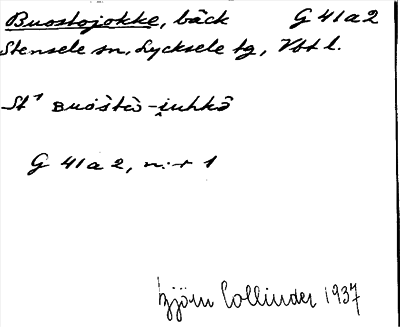 Buostojokke, bäck G 41 a 2
Stensele sn, Lycksele tg, Vbtl.
St¹ ʙuöstò-i̯uhkô
G 41 a 2, n:r 1
Björn Collinder 1937